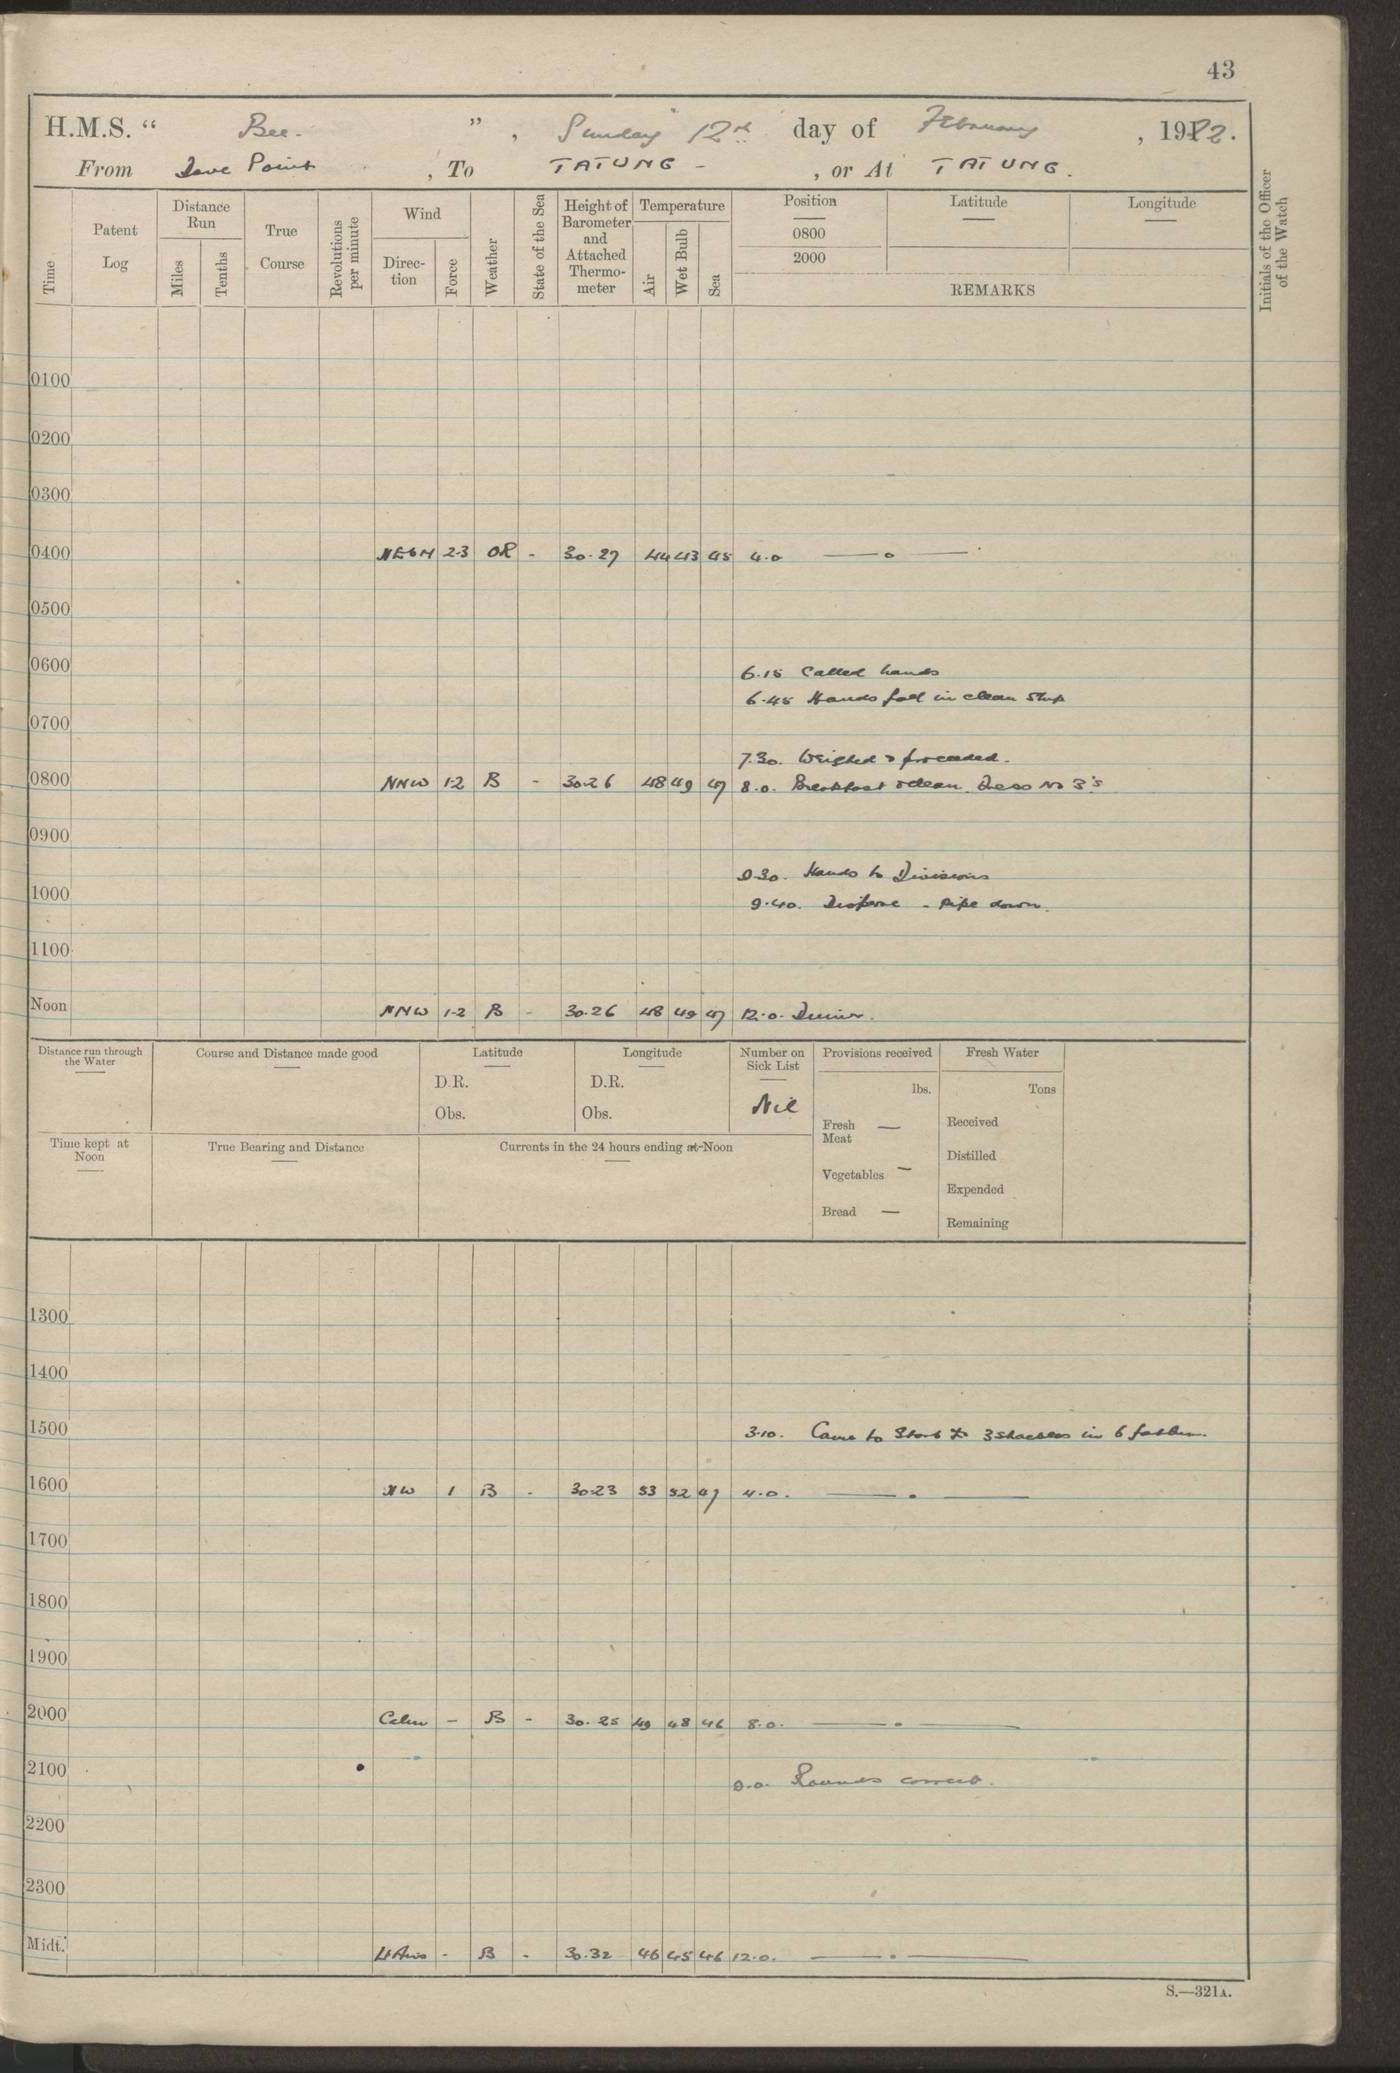 43
H.M.S. “ Bee. ” , Sunday 12th day of February , 1922.
From Dove Point , To TATUNG - , or At TATUNG.
Time
Patent Log
Distance Run
Miles
Tenths
True Course
Revolutions per minute
Wind
Direc-tion
Force
Weather
State of the Sea
Height of Barometer and Attached Thermo-meter
Temperature
Air
Wet Bulb
Sea
Position
0800
2000
Latitude
Longitude
REMARKS
Initials of the Officer of the Watch
0100
0200
0300
0400 NEbN 2-3 OR - 30.27 44 43 45 4.0 — o —
0500
0600
6.15 Called hands
6.45 Hands fall in clean Ship
0700
7.30. Weighed & proceeded.
0800 NNW 1-2 B - 30.26 48 49 47 8.0. Breakfast & clean. Dress No 3's
0900
9.30. Hands to Divisions
1000
9.40. Disperse - Pipe down.
1100
Noon NNW 1-2 B - 30.26 48 49 47 12.0. Dinner.
Distance run through the Water
Course and Distance made good
Latitude
D.R.
Obs.
Longitude
D.R.
Obs.
Number on Sick List
Nil
Provisions received
lbs.
Fresh Meat —
Vegetables —
Bread —
Fresh Water
Tons
Received
Distilled
Expended
Remaining
Time kept at Noon
True Bearing and Distance
Currents in the 24 hours ending at Noon
1300
1400
1500 3.10. Came to Starb 3 shackles in 6 fathom
1600 NW 1 B - 30.23 53 52 47 4.0. — . —
1700
1800
1900
2000 Calm - B - 30.25 49 48 46 8.0. — . —
2100
9.0. Rounds correct.
2200
2300
Midt. - B - 30.32 46 45 46 12.0. — . —
S.—321A.